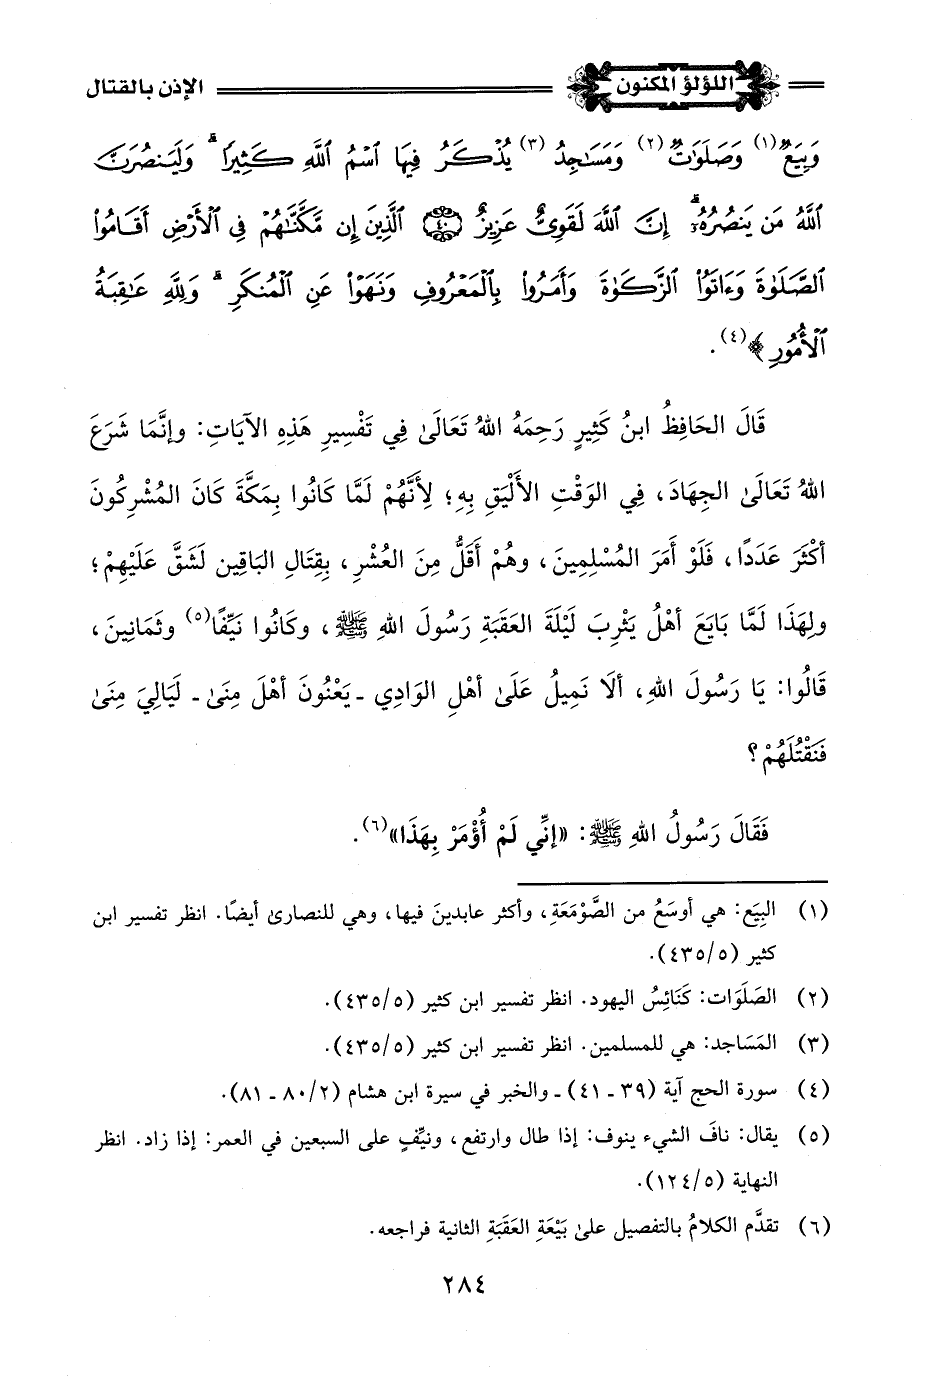 اللؤلؤ المكنون
الإذن بالقتال
وَبِيَعٌ(١) وَصَلَوَٰتٌ(٢) وَمَسَٰجِدُ(٣) يُذْكَرُ فِيهَا ٱسْمُ ٱللَّهِ كَثِيرًا ۗ وَلَيَنصُرَنَّ
ٱللَّهُ مَن يَنصُرُهُۥٓ ۗ إِنَّ ٱللَّهَ لَقَوِىٌّ عَزِيزٌ ﴿٤٠﴾ ٱلَّذِينَ إِن مَّكَّنَّٰهُمْ فِى ٱلْأَرْضِ أَقَامُوا۟
ٱلصَّلَوٰةَ وَءَاتَوُا۟ ٱلزَّكَوٰةَ وَأَمَرُوا۟ بِٱلْمَعْرُوفِ وَنَهَوْا۟ عَنِ ٱلْمُنكَرِ ۗ وَلِلَّهِ عَٰقِبَةُ
ٱلْأُمُورِ﴾(٤).
قَالَ الحَافِظُ ابنُ كَثِيرٍ رَحِمَهُ اللهُ تَعَالَىٰ فِي تَفْسِيرِ هَذِهِ الآيَاتِ: وإنَّمَا شَرَعَ
اللهُ تَعَالَىٰ الجِهَادَ، فِي الوَقْتِ الأَلْيَقِ بِهِ؛ لِأَنَّهُمْ لَمَّا كَانُوا بِمَكَّةَ كَانَ المُشْرِكُونَ
أكْثَرَ عَدَدًا، فَلَوْ أَمَرَ المُسْلِمِينَ، وهُمْ أَقَلُّ مِنَ العُشْرِ، بِقِتَالِ البَاقِين لَشَقَّ عَلَيْهِمْ؛
ولِهَذَا لَمَّا بَايَعَ أهْلُ يَثْرِبَ لَيْلَةَ العَقَبَةِ رَسُولَ اللهِ ﷺ، وكَانُوا نَيِّفًا(٥) وثَمَانِينَ،
قَالُوا: يَا رَسُولَ اللهِ، ألَا نَمِيلُ عَلَىٰ أهْلِ الوَادِي ـ يَعْنُونَ أهْلَ مِنَىٰ ـ لَيَالِيَ مِنَىٰ
فَنَقْتُلَهُمْ؟
فَقَالَ رَسُولُ اللهِ ﷺ: «إنِّي لَمْ أُؤْمَرْ بِهَذَا»(٦).
(١) البِيَع: هي أوسَعُ من الصَّوْمَعَةِ، وأكثر عابدينَ فيها، وهي للنصارىٰ أيضًا. انظر تفسير ابن
كثير (٤٣٥/٥).
(٢) الصَلَوَات: كَنَائِسُ اليهود. انظر تفسير ابن كثير (٤٣٥/٥).
(٣) المَسَاجد: هي للمسلمين. انظر تفسير ابن كثير (٤٣٥/٥).
(٤) سورة الحج آية (٣٩ ـ ٤١) ـ والخبر في سيرة ابن هشام (٨٠/٢ ـ ٨١).
(٥) يقال: نافَ الشيء ينوف: إذا طال وارتفع، ونيِّفٍ على السبعين في العمر: إذا زاد. انظر
النهاية (١٢٤/٥).
(٦) تقدَّم الكلامُ بالتفصيل علىٰ بَيْعَةِ العَقَبَةِ الثانية فراجعه.
٢٨٤